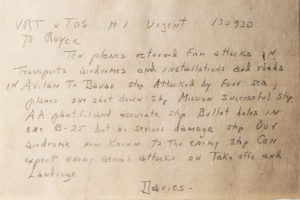 VRT v TOS #1 Urgent 130930
To Royce
Ten planes returned from attacks on
Transports airdromes and installations and roads
in Davao stop Attacked by four sea
planes one shot down stop Mission successful stop
AA plentiful and accurate stop Bullet holes in
one B-25 but no serious damage stop Our
airdrome now Known to the enemy stop Can
expect enemy aerial attacks on Take offs and
Landings.
Davies-